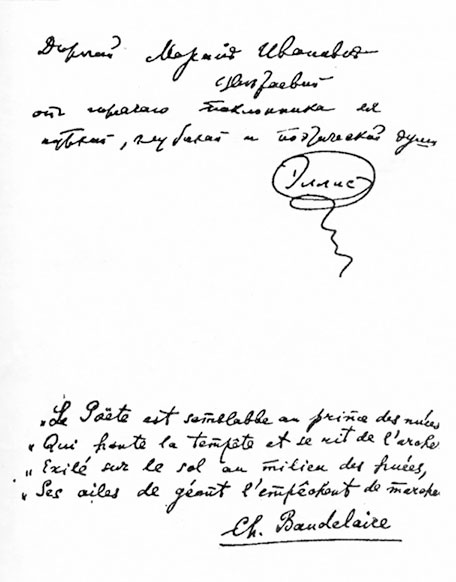 Дорогой Ивановнѣ
Цвѣтаевой
отъ горячаго поклонника ея
чуткой, глубокой и поэтической души
Эллис
„Le Poëte est semblable au prince des nuées
„Qui hante la tempête et se rit de l'arche
„Exilé sur le sol au milieu des huées,
„Ses ailes de géant l'empêchent de marche
Ch. Baudelaire